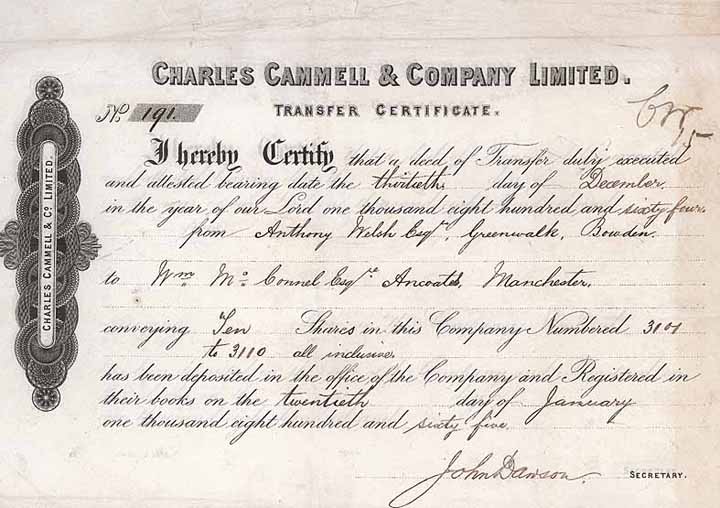 CHARLES CAMMELL & COMPANY LIMITED.
No. 191.
TRANSFER CERTIFICATE.
I hereby Certify that a deed of Transfer duly executed
and attested bearing date the thirtieth day of December
in the year of our Lord one thousand eight hundred and sixty four
from Anthony Welsh Esqr, Greenwalk, Bowden.
to Wm Mc Connel Esqre Ancoats, Manchester,
conveying Ten Shares in this Company Numbered 3101
to 3110 all inclusive
has been deposited in the office of the Company and Registered in
their books on the twentieth day of January
one thousand eight hundred and sixty five
John Dawson.
SECRETARY.
CHARLES CAMMELL & Co LIMITED.